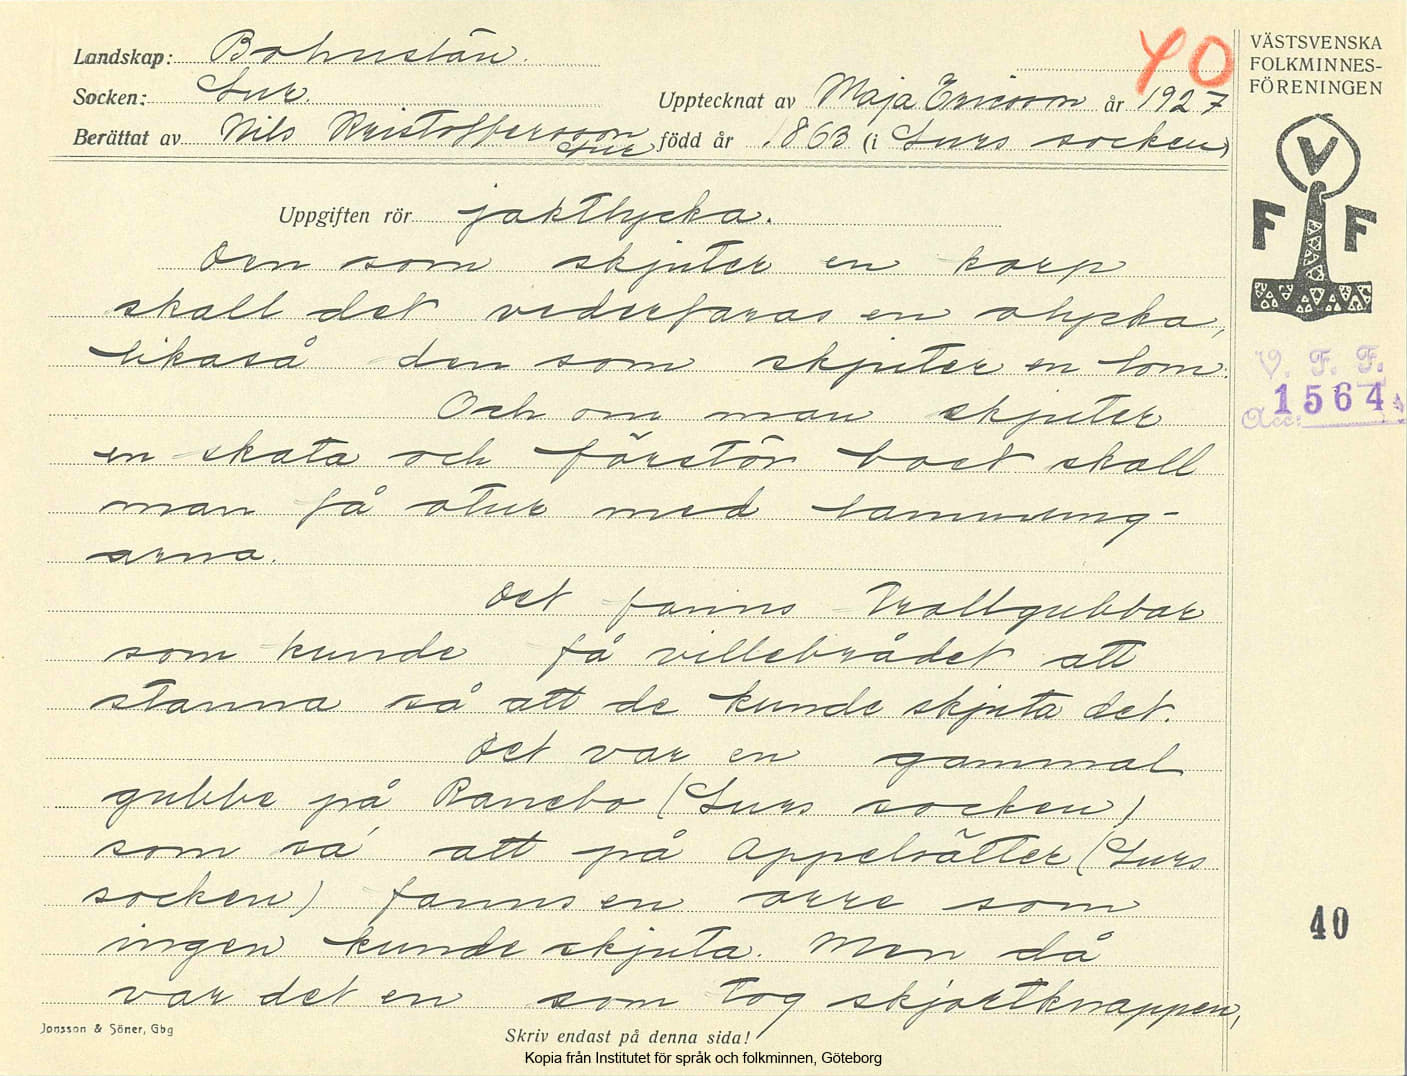 Landskap: Bohuslän.
Socken: Lur.
Upptecknat av Maja Ericson år 1927
Berättat av Nils Kristoffersson Lur född år 1863 (i Lurs socken)
40
VÄSTSVENSKA
FOLKMINNES-
FÖRENINGEN
V
F F
V. F. F.
Acc: 1564
Uppgiften rör jaktlycka.
Den som skjuter en korp
skall det vederfaras en olycka,
likaså den som skjuter en lom.
Och om man skjuter
en skata och förstör boet skall
man få otur med lammung-
arna.
Det fanns trollgubbar
som kunde få villebrådet att
stanna så att de kunde skjuta det.
Det var en gammal
gubbe på Ranebo (Lurs socken)
som sa' att på Appelsätter (Lurs
socken) fanns en orre som
ingen kunde skjuta. Men då
var det en som tog skjortknappen,
40
Jonsson & Söner, Gbg
Skriv endast på denna sida!
Kopia från Institutet för språk och folkminnen, Göteborg